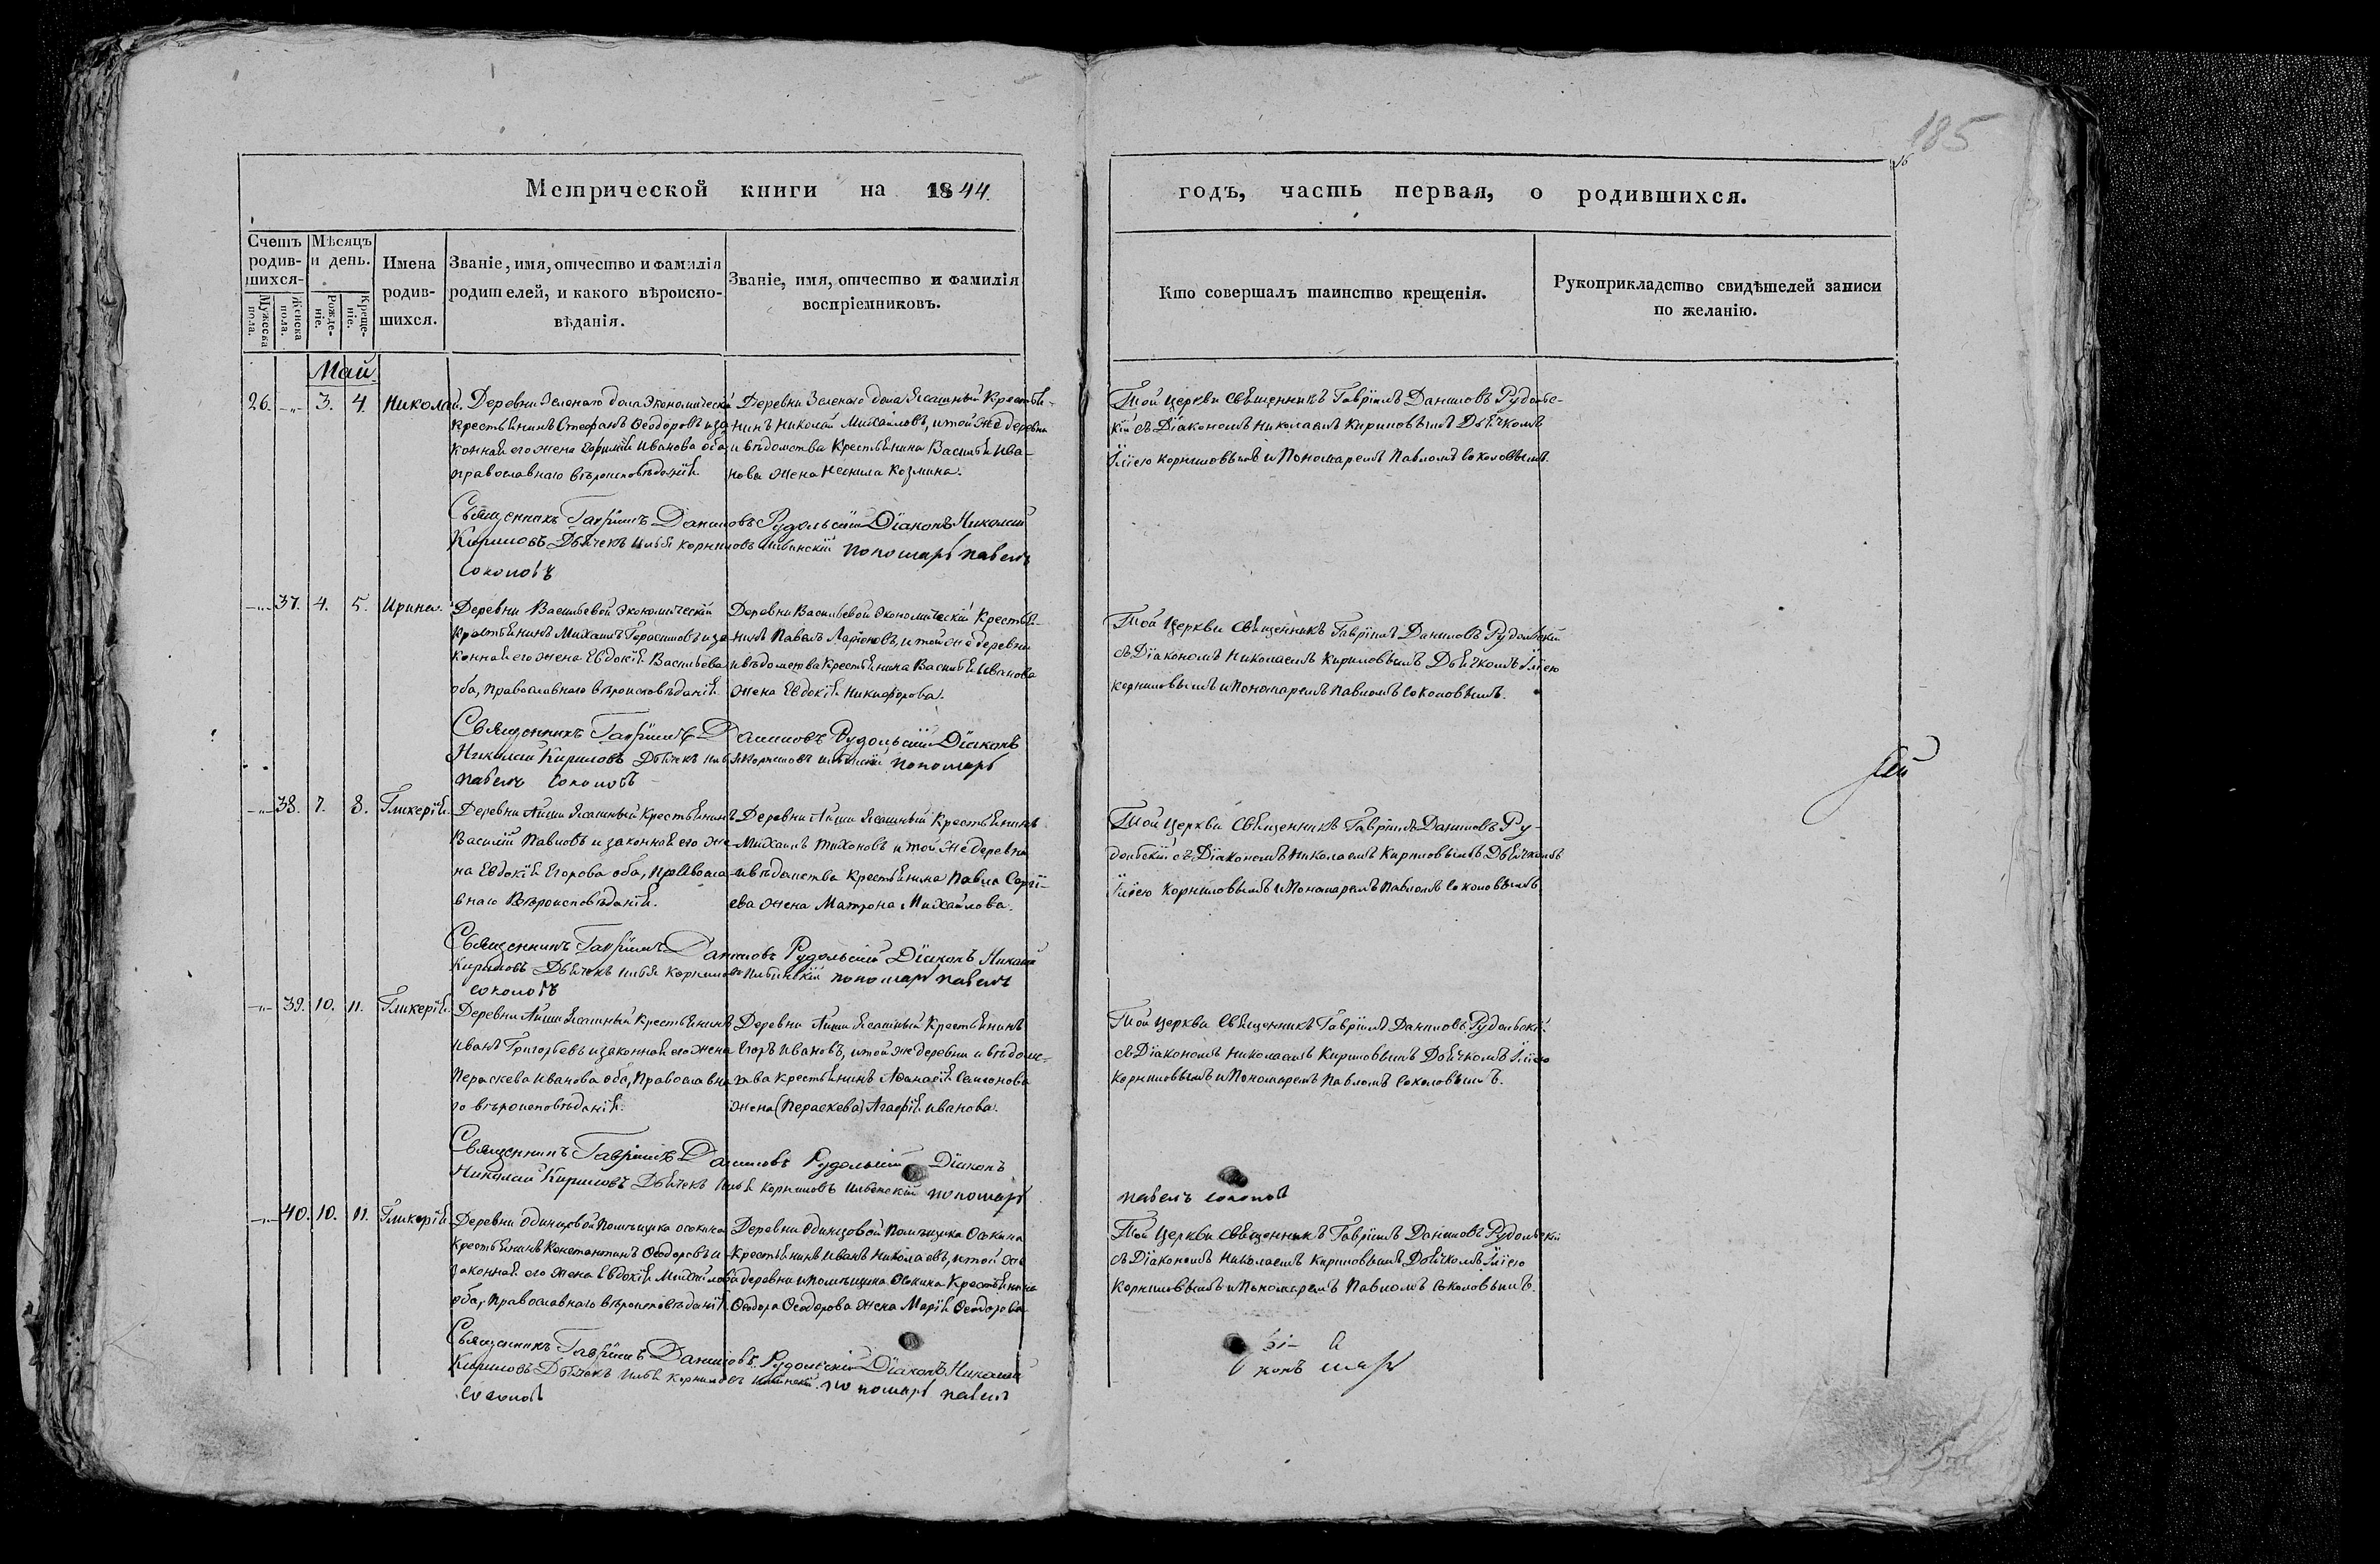 185
16
Метрической книги на 1844.
годъ, часть первая, о родившихся.
Счетъ родив-шихся.
Мужеска пола.
Женска пола.
Мѣсяцъ и день.
Рожде-ніе.
Креще-ніе.
Имена родив-шихся.
Званіе, имя, отчество и фамилія родителей, и какого вѣроиспо-вѣданія.
Званіе, имя, отчество и фамилія воспріемниковъ.
Кто совершалъ таинство крещенія.
Рукоприкладство свидѣтелей записи по желанію.
Май.
26. -„- 3. 4. Николай.
Деревни Зеленаго дола Экономическій
крестьянинъ Стефанъ Ѳеодоровъ и за-
конная его жена Ивановa оба
православнаго вѣроисповѣданія.
Деревни Зеленаго дола Ясашный Крестья-
нинъ Николай Михайловъ, и той же деревни
и вѣдомства Крестьянина Василья Ива-
нова жена Козмина.
Той церкви Священникъ Гавріилъ Даниловъ Рудольс-
кій съ Діакономъ Николаемъ Кириловымъ Дьячкомъ
Іліею Корниловымъ и Пономаремъ Павломъ Соколовымъ.
Священникъ Гавріилъ Даниловъ Рудольскій Діаконъ Николай
Кириловъ Дьячекъ Илья Корниловъ Ильинскій пономарь павелъ
соколовъ
-„- 37. 4. 5. Ирина.
Деревни Васильевой Экономическій
Крестьянинъ Михаилъ Герасимовъ и за-
конная его жена Евдокія Васильева
оба, Православнаго вѣроисповѣданія.
Деревни Васильевой Экономическій Крестья-
нинъ Павелъ Ларіоновъ, и той же деревни
и вѣдомства Крестьянина Василья Иванова
жена Евдокія Никифорова.
Той Церкви Священникъ Гавріилъ Даниловъ Рудольскій
съ Діакономъ Николаемъ Кириловымъ Дьячкомъ Іліею
Корниловымъ и Пономаремъ Павломъ Соколовымъ.
Священникъ Гавріилъ Даниловъ Рудольскій Діаконъ
Николай Кириловъ Дьячекъ Илья Корниловъ Ильинскій пономарь
павелъ соколовъ
-„- 38. 7. 8. Гликерія.
Деревни Айши Ясашный Крестьянинъ
Василій Павловъ и законная его же-
на Евдокія Егорова оба, Православ-
внаго Вѣроисповѣданія.
Деревни Айши Ясашный Крестьянинъ
Михаилъ Тихоновъ и той же деревни
и вѣдомства Крестьянина Павла Сергі-
ева жена Матрона Михайлова.
Той Церкви Священникъ Гавріилъ Даниловъ Ру-
дольскій съ Діакономъ Николаемъ Кириловымъ Дьячкомъ
Іліею Корниловымъ и Пономаремъ Павломъ Соколовымъ
Священникъ Гавріилъ Даниловъ Рудольскій Діаконъ Николай
Кириловъ Дьячекъ Илья Корниловъ Ильинскій пономарь павелъ
соколовъ
-„- 39. 10. 11. Гликерія.
Деревни Айши Ясашный Крестьянинъ
Иванъ Григорьевъ и законная его жена
Пераскева Иванова оба, Православна-
го вѣроисповѣданія.
Деревни Айши Ясашный Крестьянинъ
Егоръ Ивановъ, и той же деревни и вѣдомс-
тва крестьянинъ Аѳанасія Самсонова
жена (Пераскева) Агафія Иванова.
Той Церкви Священникъ Гавріилъ Даниловъ Рудольскій
съ Діакономъ Николаемъ Кириловымъ Дьячкомъ Іліею
Корниловымъ и Пономаремъ Павломъ Соколовымъ.
Священникъ Гавріилъ Даниловъ Рудольскій Діаконъ
Николай Кириловъ Дьячекъ Илья Корниловъ Ильинскій пономарь
павелъ соколовъ
-„- 40. 10. 11. Гликерія.
Деревни Одинцовой Помѣщика Осокина
Крестьянинъ Константинъ Ѳеодоровъ и
законная его жена Евдокія Михайлова
оба, Православнаго вѣроисповѣданія.
Деревни Одинцовой Помѣщика Осокина
Крестьянинъ Иванъ Николаевъ, и той же
деревни и помѣщика Осокина Крестьянина
Ѳеодора Ѳеодорова жена Марія Ѳеодорова
Той Церкви Священникъ Гавріилъ Даниловъ Рудольскій
съ Діакономъ Николаемъ Кириловымъ Дьячкомъ Іліею
Корниловымъ и Пономаремъ Павломъ Соколовымъ.
Священникъ Гавріилъ Даниловъ Рудольскій Діаконъ Николай
Кириловъ Дьячекъ Илья Корниловъ Ильинскій пономарь павелъ
соколовъ